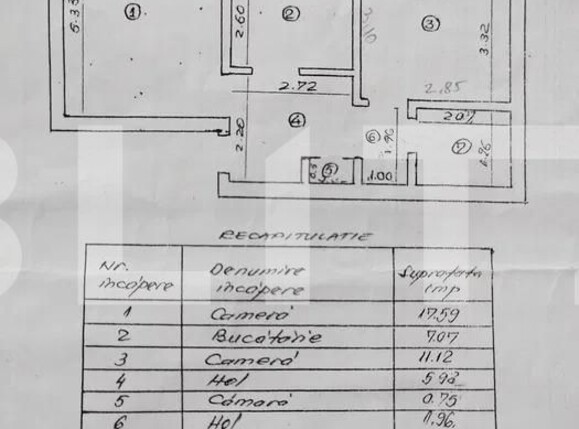 1
2
3
5.33
2.60
3.10
3.32
2.72
2.85
4
6
2.07
2.20
1.96
7
1.96
5
1.00
RECAPITULATIE
Nr. încăpere
Denumire încăpere
Suprafața mp
1 Cameră 17.59
2 Bucătărie 7.07
3 Cameră 11.12
4 Hol 5.98
5 Cămară 0.75
6 Hol 1.96